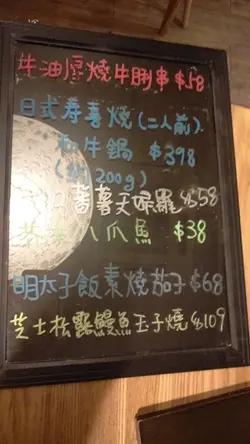 牛油燒牛脷串 $58
日式寿喜燒(二人前)
和牛鍋 $398
(約200g)
蕃薯天婦羅 $58
八爪魚 $38
明太子飯素燒茄子 $68
芝士松露鰻魚玉子燒 $109